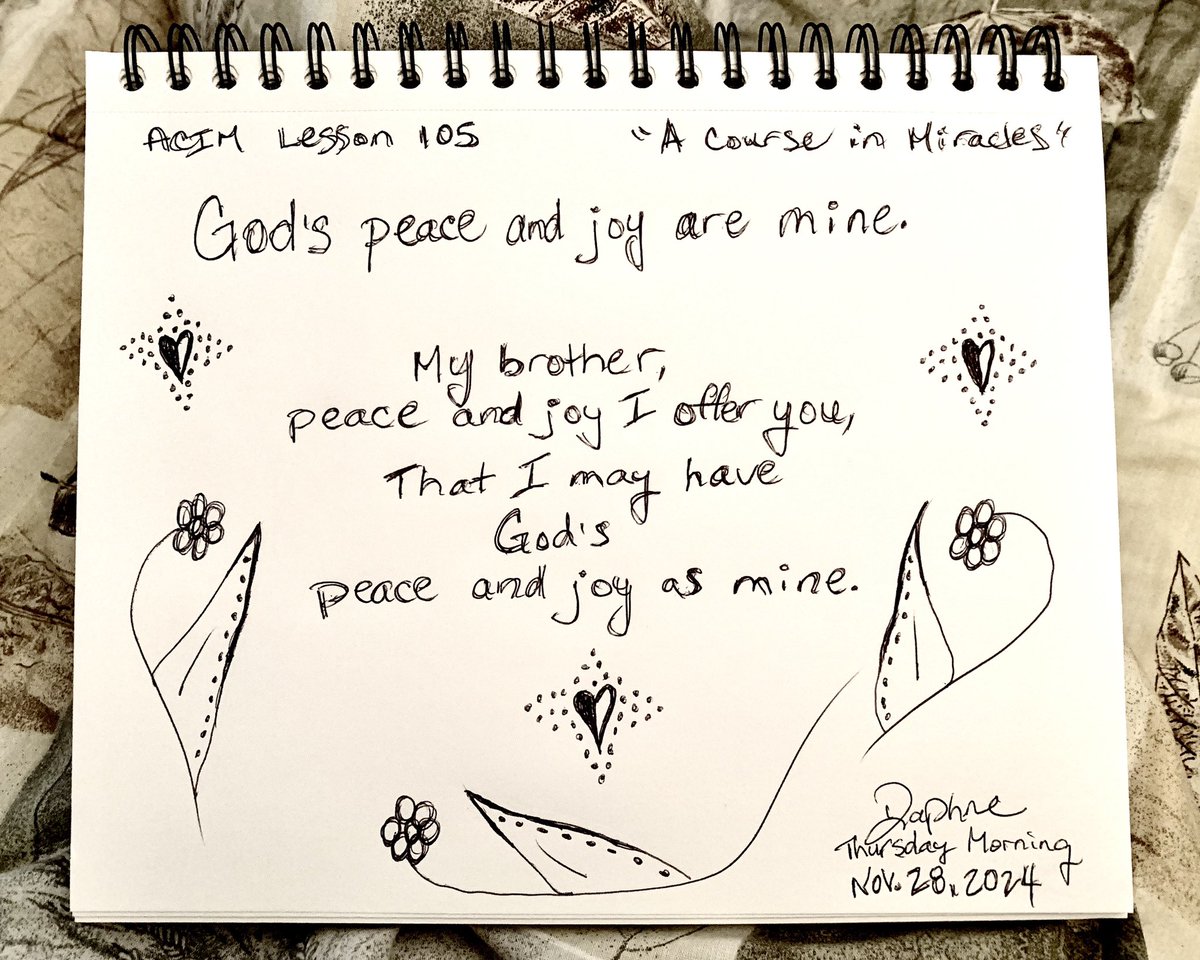 ACIM Lesson 105
"A Course in Miracles"
God's peace and joy are mine.
My brother,
peace and joy I offer you,
That I may have
God's
peace and joy as mine.
Daphne
Thursday Morning
Nov. 28, 2024